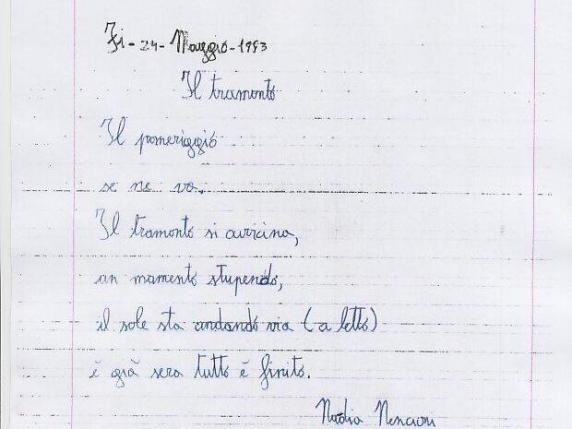 Fi - 24 - Maggio - 1993
Il tramonto
Il pomeriggio
se ne va.
Il tramonto si avvicina,
un momento stupendo,
il sole sta andando via (a letto)
è già sera tutto è finito.
Nadia Nencioni